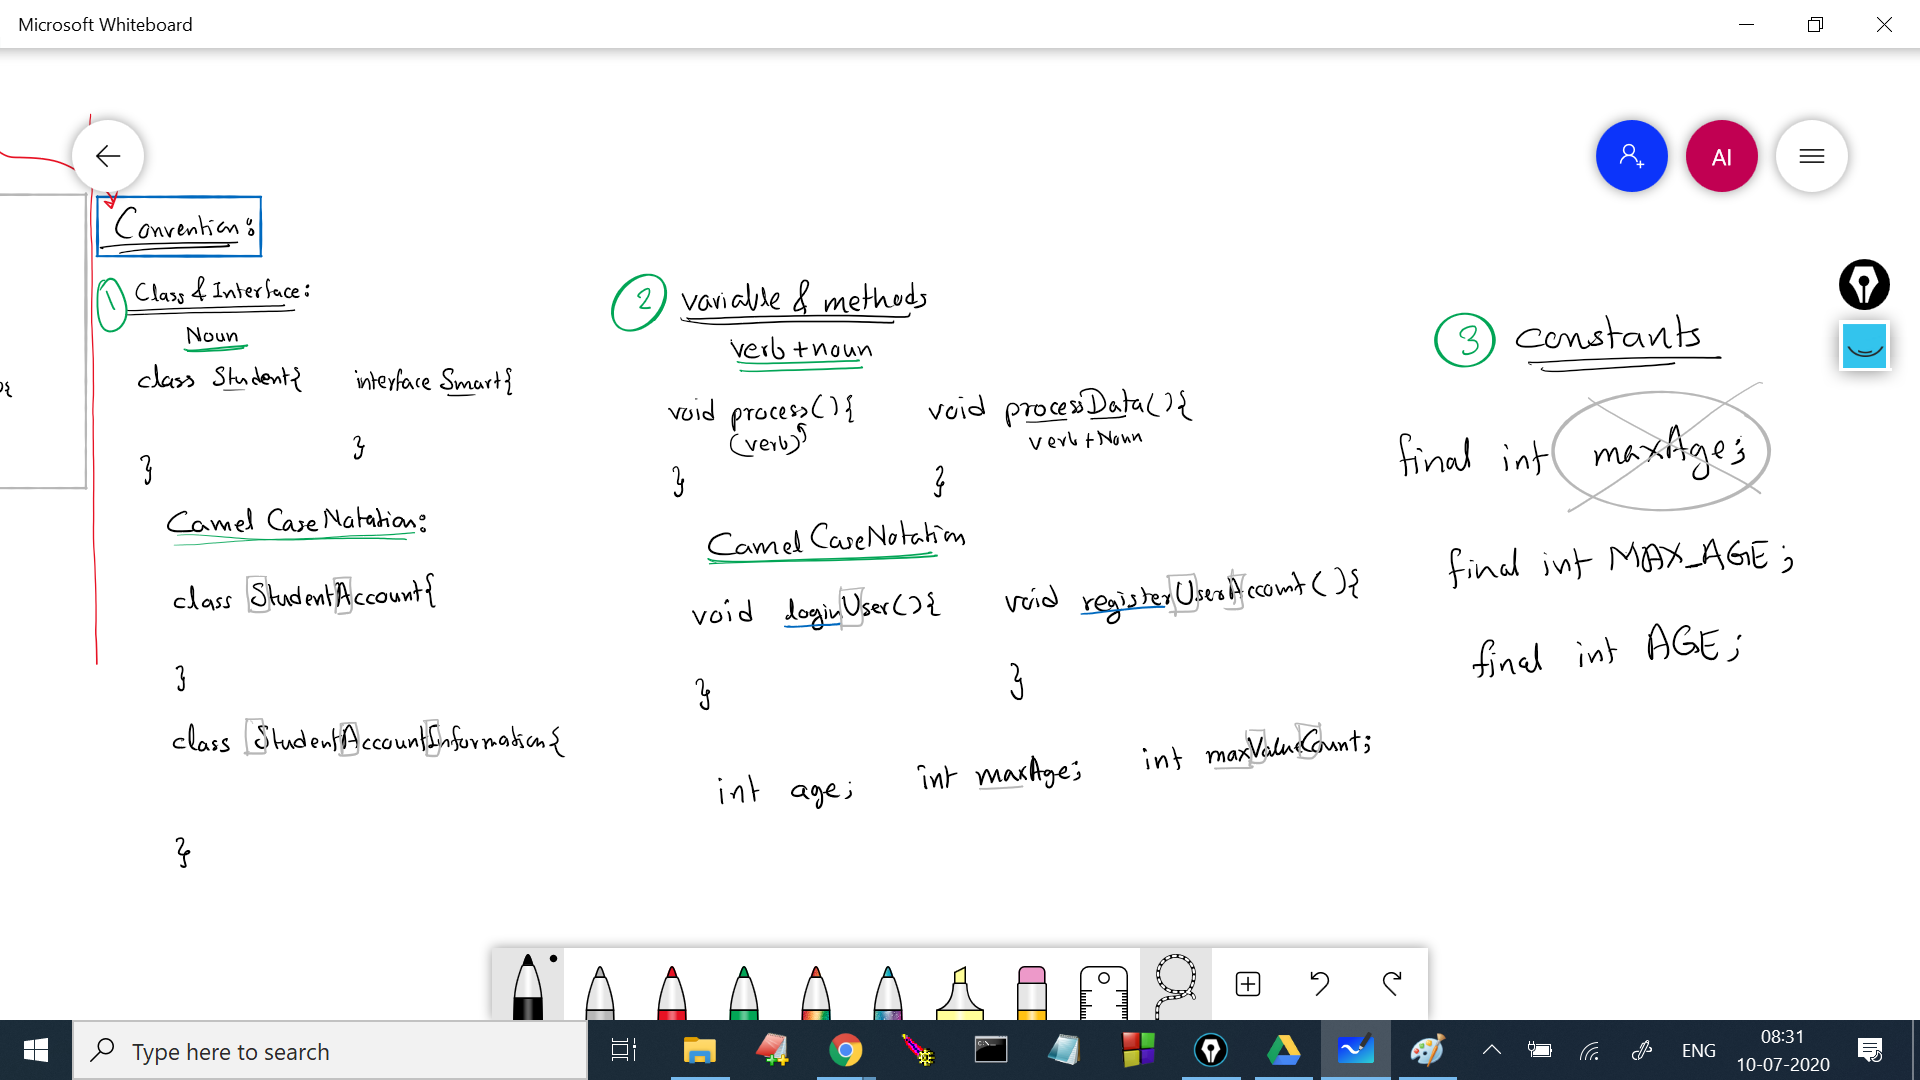 Microsoft Whiteboard
AI
Convention:
1 Class & Interface:
Noun
class Student{ interface Smart{
}
}
Camel Case Notation:
class StudentAccount{
}
class StudentAccountInformation{
}
2 variable & methods
verb + noun
void process(){ void processData(){
(verb) verb + Noun
} }
Camel CaseNotation
void loginUser(){ void registerUserAccount(){
} }
int age; int maxAge; int maxValueCount;
3 constants
final int maxAge;
final int MAX_AGE;
final int AGE;
Type here to search
ENG
08:31
10-07-2020